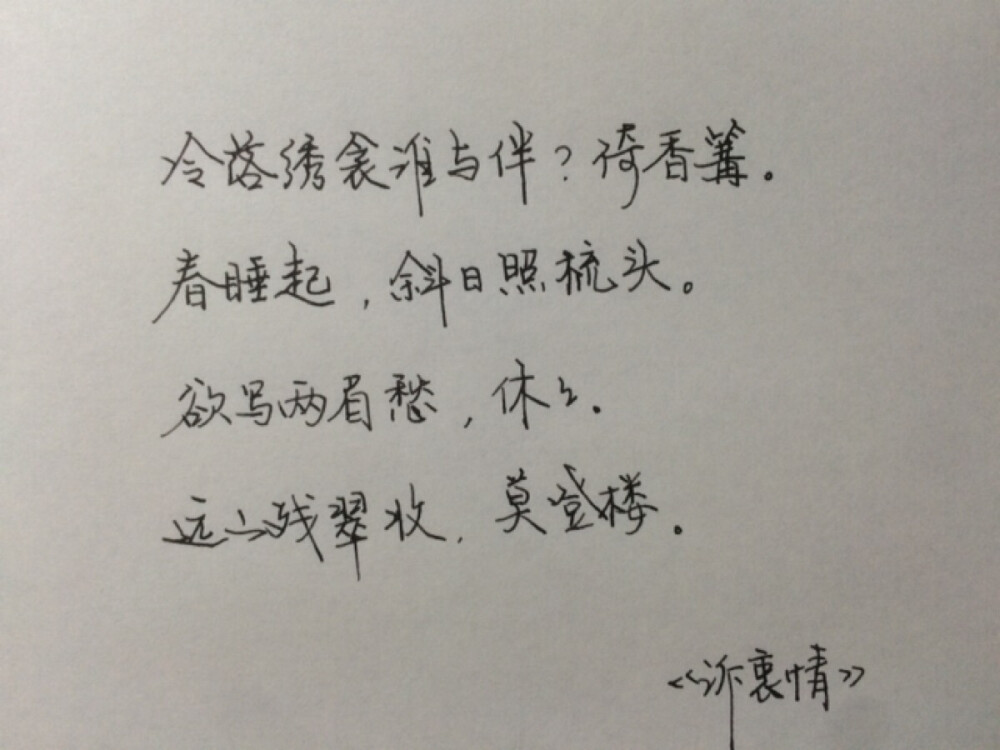 冷落绣衾谁与伴？倚香篝。
春睡起，斜日照梳头。
欲写两眉愁，休々.
远山残翠收，莫登楼。
《诉衷情》